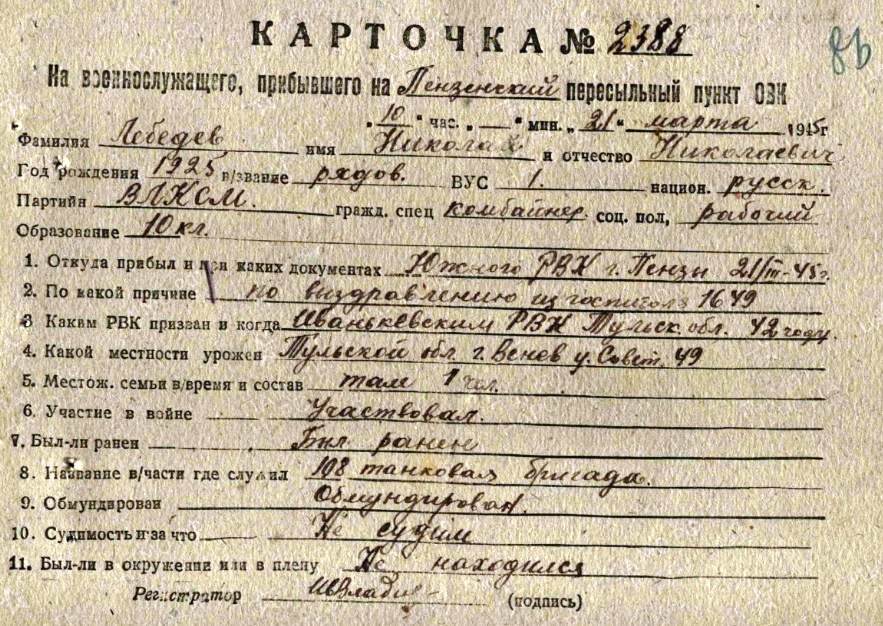 КАРТОЧКА № 2388
86
На военнослужащего, прибывшего на Пензенский пересыльный пункт ОВК
„10“ час. „—“ мин. „21“ марта 1945г
Фамилия Лебедев имя Николай и отчество Николаевич
Год рождения 1925 в/звание рядов. ВУС 1. национ. русск.
Партийн ВЛКСМ. гражд. спец комбайнер. соц. пол. рабочий
Образование 10 кл.
1. Откуда прибыл и при каких документах Южного РВК г. Пензы 21/III-45г.
2. По какой причине по выздравлению из госпиталя 1649
3 Каким РВК призван и когда РВК Тульск. обл. 42 году.
4. Какой местности урожен Тульской обл. г. Венев у. Совет. 49
5. Местож. семьи в/время и состав там 1 чел.
6. Участие в войне Участвовал.
7. Был-ли ранен Был ранен
8. Название в/части где служил 108 танковая бригада.
9. Обмундирован Обмундирован.
10. Судимость и за что Не судим
11. Был-ли в окружении или в плену Не находился
Регистратор (подпись)